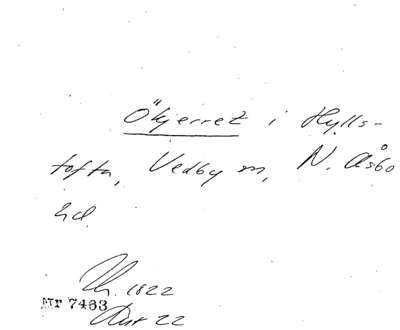 Ökjerret i Hylls-
tofta, Vedby sn, N. Åsbo
hd.
1822
Nr 7463
22